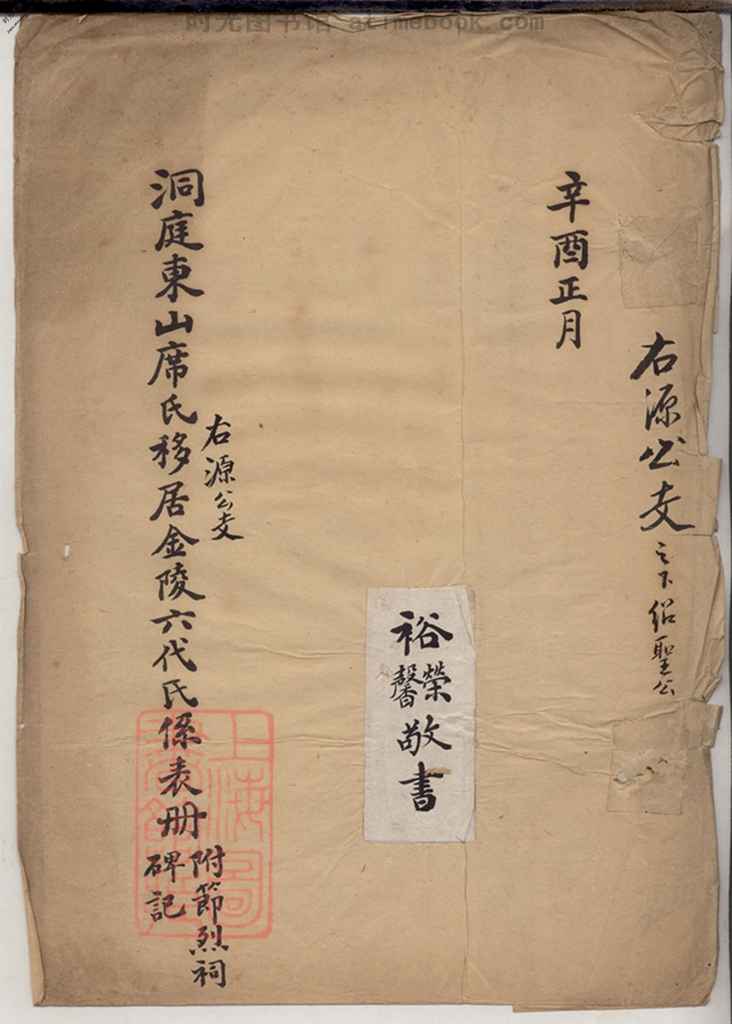 时光图书馆 atimebook.com
右源公支之下绍聖公
辛酉正月
裕榮馨敬書
右源公支
洞庭東山席氏移居金陵六代氏係表册附節烈祠碑記
上海圖書館藏